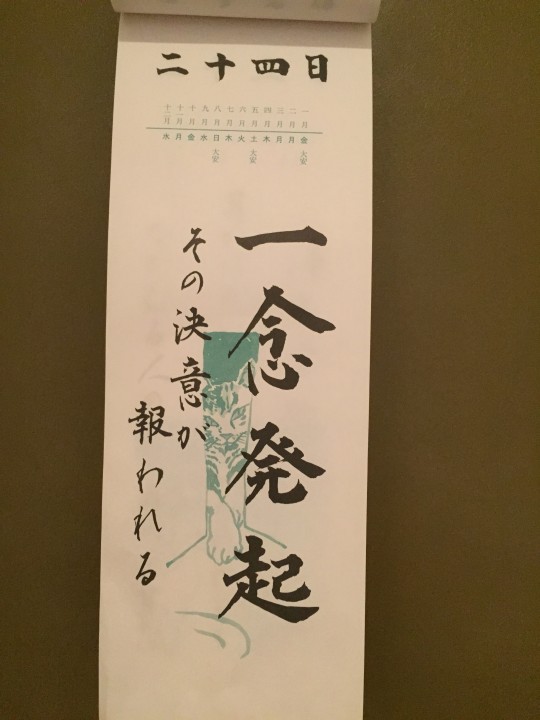 二十四日
一月 金 大安
二月 月
三月 月
四月 木
五月 土 大安
六月 火
七月 木
八月 日 大安
九月 水
十月 金
十一月 月
十二月 水
一念発起
その決意が
報われる